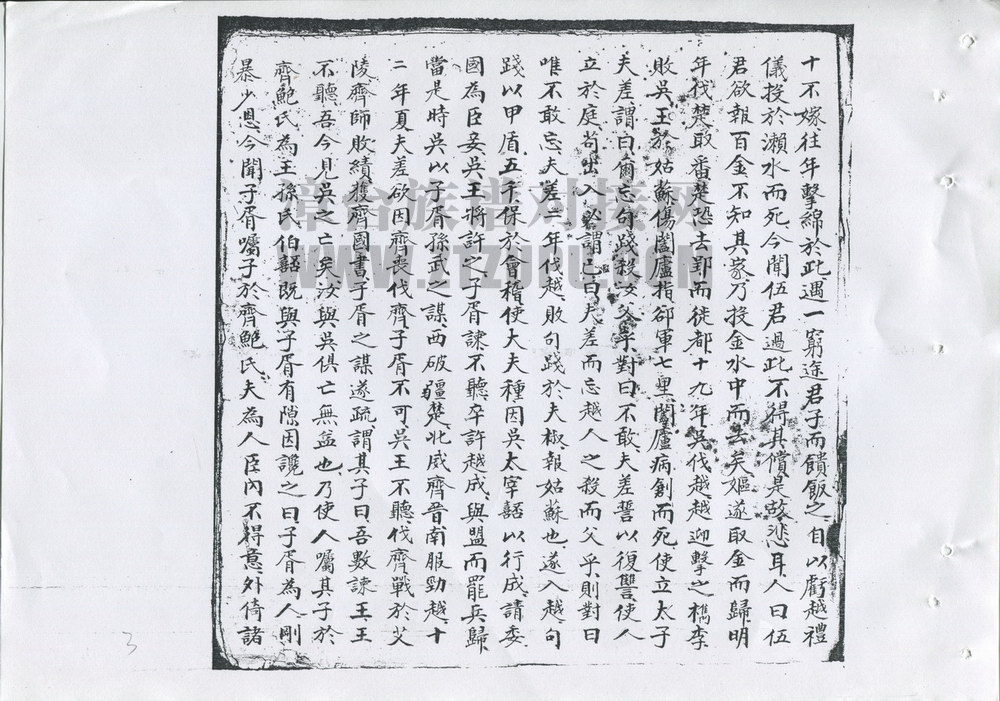 十不嫁往年擊綿於此遇一窮途君子而饋飯之自以虧越禮
儀投於瀨水而死今聞伍君過此不得其償是故悲耳人曰伍
君欲報百金不知其家乃投金水中而去矣嫗遂取金而歸明
年伐楚取番楚恐去郢而徙都十九年吳伐越越迎擊之檇李
敗吳王於姑蘇傷闔廬指卻軍七里闔廬病創而死使立太子
夫差謂曰爾忘句踐殺汝父乎對曰不敢夫差誓以復讐使人
立於庭苟出入必謂己曰夫差而忘越人之殺而父乎則對曰
唯不敢忘夫差二年伐越敗句踐於夫椒報姑蘇也遂入越句
踐以甲盾五千保於會稽使大夫種因吳太宰嚭以行成請委
國為臣妾吳王將許之子胥諫不聽卒許越成與盟而罷兵歸
當是時吳以子胥孫武之謀西破疆楚北威齊晉南服勁越十
二年夏夫差欲因齊喪伐齊子胥不可吳王不聽伐齊戰於艾
陵齊師敗績獲齊國書子胥之謀遂疏謂其子曰吾數諫王王
不聽吾今見吳之亡矣汝與吳俱亡無益也乃使人囑其子於
齊鮑氏為王孫氏伯嚭既與子胥有隙因讒之曰子胥為人剛
暴少恩今聞子胥囑子於齊鮑氏夫為人臣內不得意外倚諸
漳台族譜对接网
WWW.ZTZUPU.COM
3